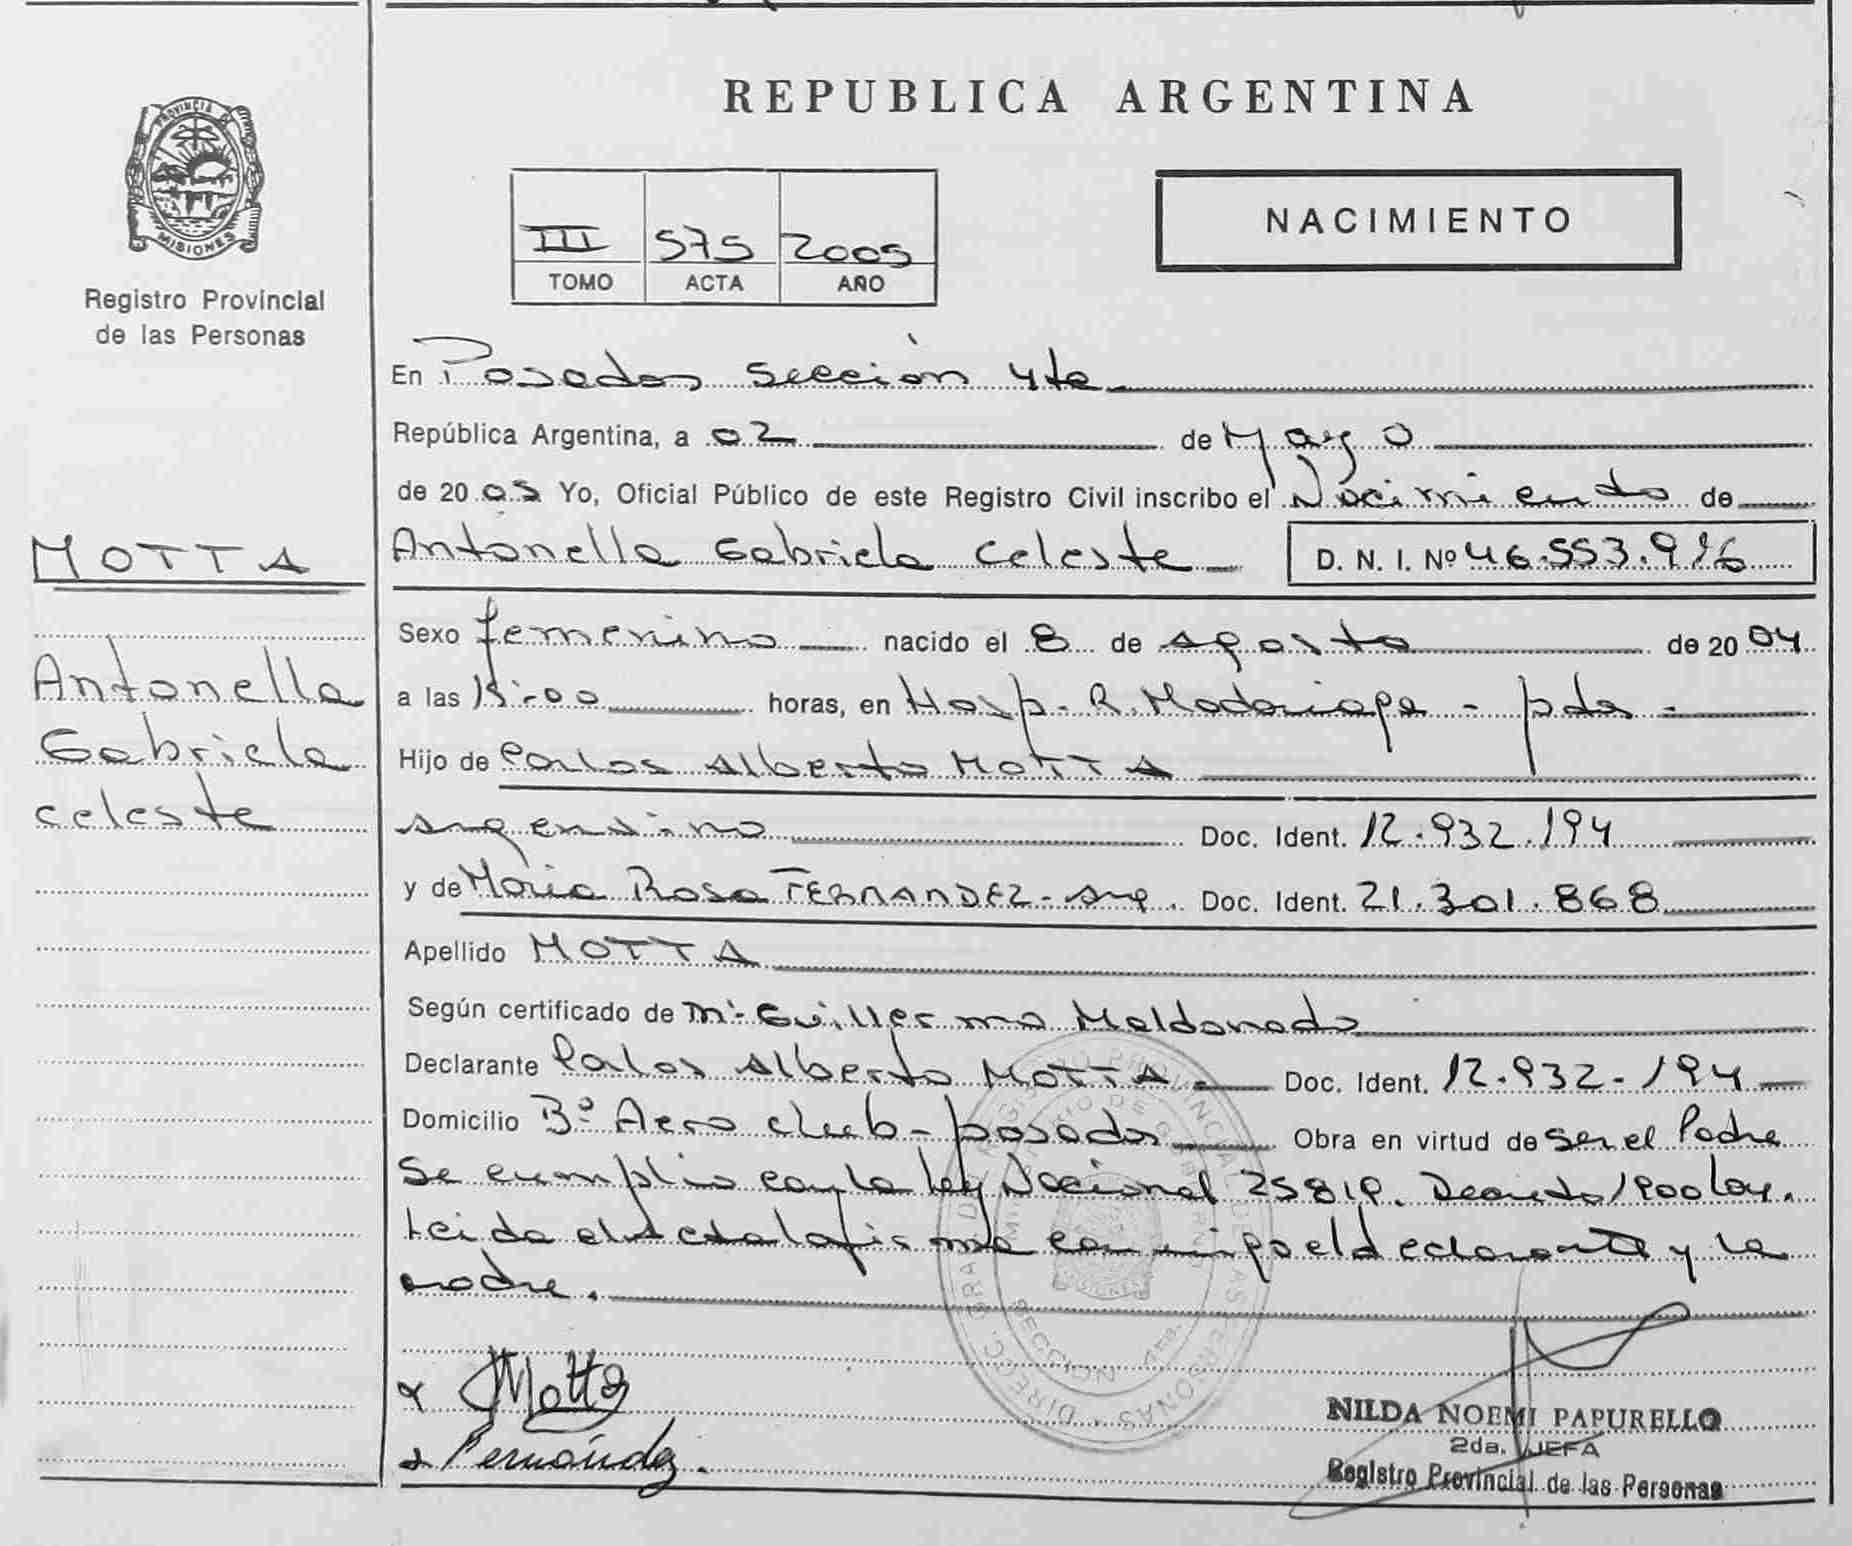 PROVINCIA DE
MISIONES
Registro Provincial
de las Personas
MOTTA
Antonella
Gabriela
celeste
REPUBLICA ARGENTINA
III 575 2005
TOMO ACTA AÑO
NACIMIENTO
En Posadas sección 4ta
República Argentina, a 02 de Mayo
de 2005 Yo, Oficial Público de este Registro Civil inscribo el Nacimiento de
Antonella Gabriela Celeste D. N. I. Nº 46.553.916
Sexo femenino nacido el 8 de agosto de 2004
a las horas, en Hosp. R. Madariaga - pdas -
Hijo de Carlos Alberto MOTTA
argentino Doc. Ident. 12.932.194
y de María Rosa FERNANDEZ - arg. Doc. Ident. 21.301.868
Apellido MOTTA
Según certificado de Guillermo Maldonado
Declarante Carlos Alberto MOTTA Doc. Ident. 12.932.194
Domicilio Bº Aero club - posadas Obra en virtud de ser el Padre
Se cumplio con la ley Nacional 25819. Decreto 1900/04.
Leida el acta la firma conmigo el declarante y la
madre.
Motta
Fernández.
NILDA NOEMI PAPURELLO
2da. JEFA
Registro Provincial de las Personas